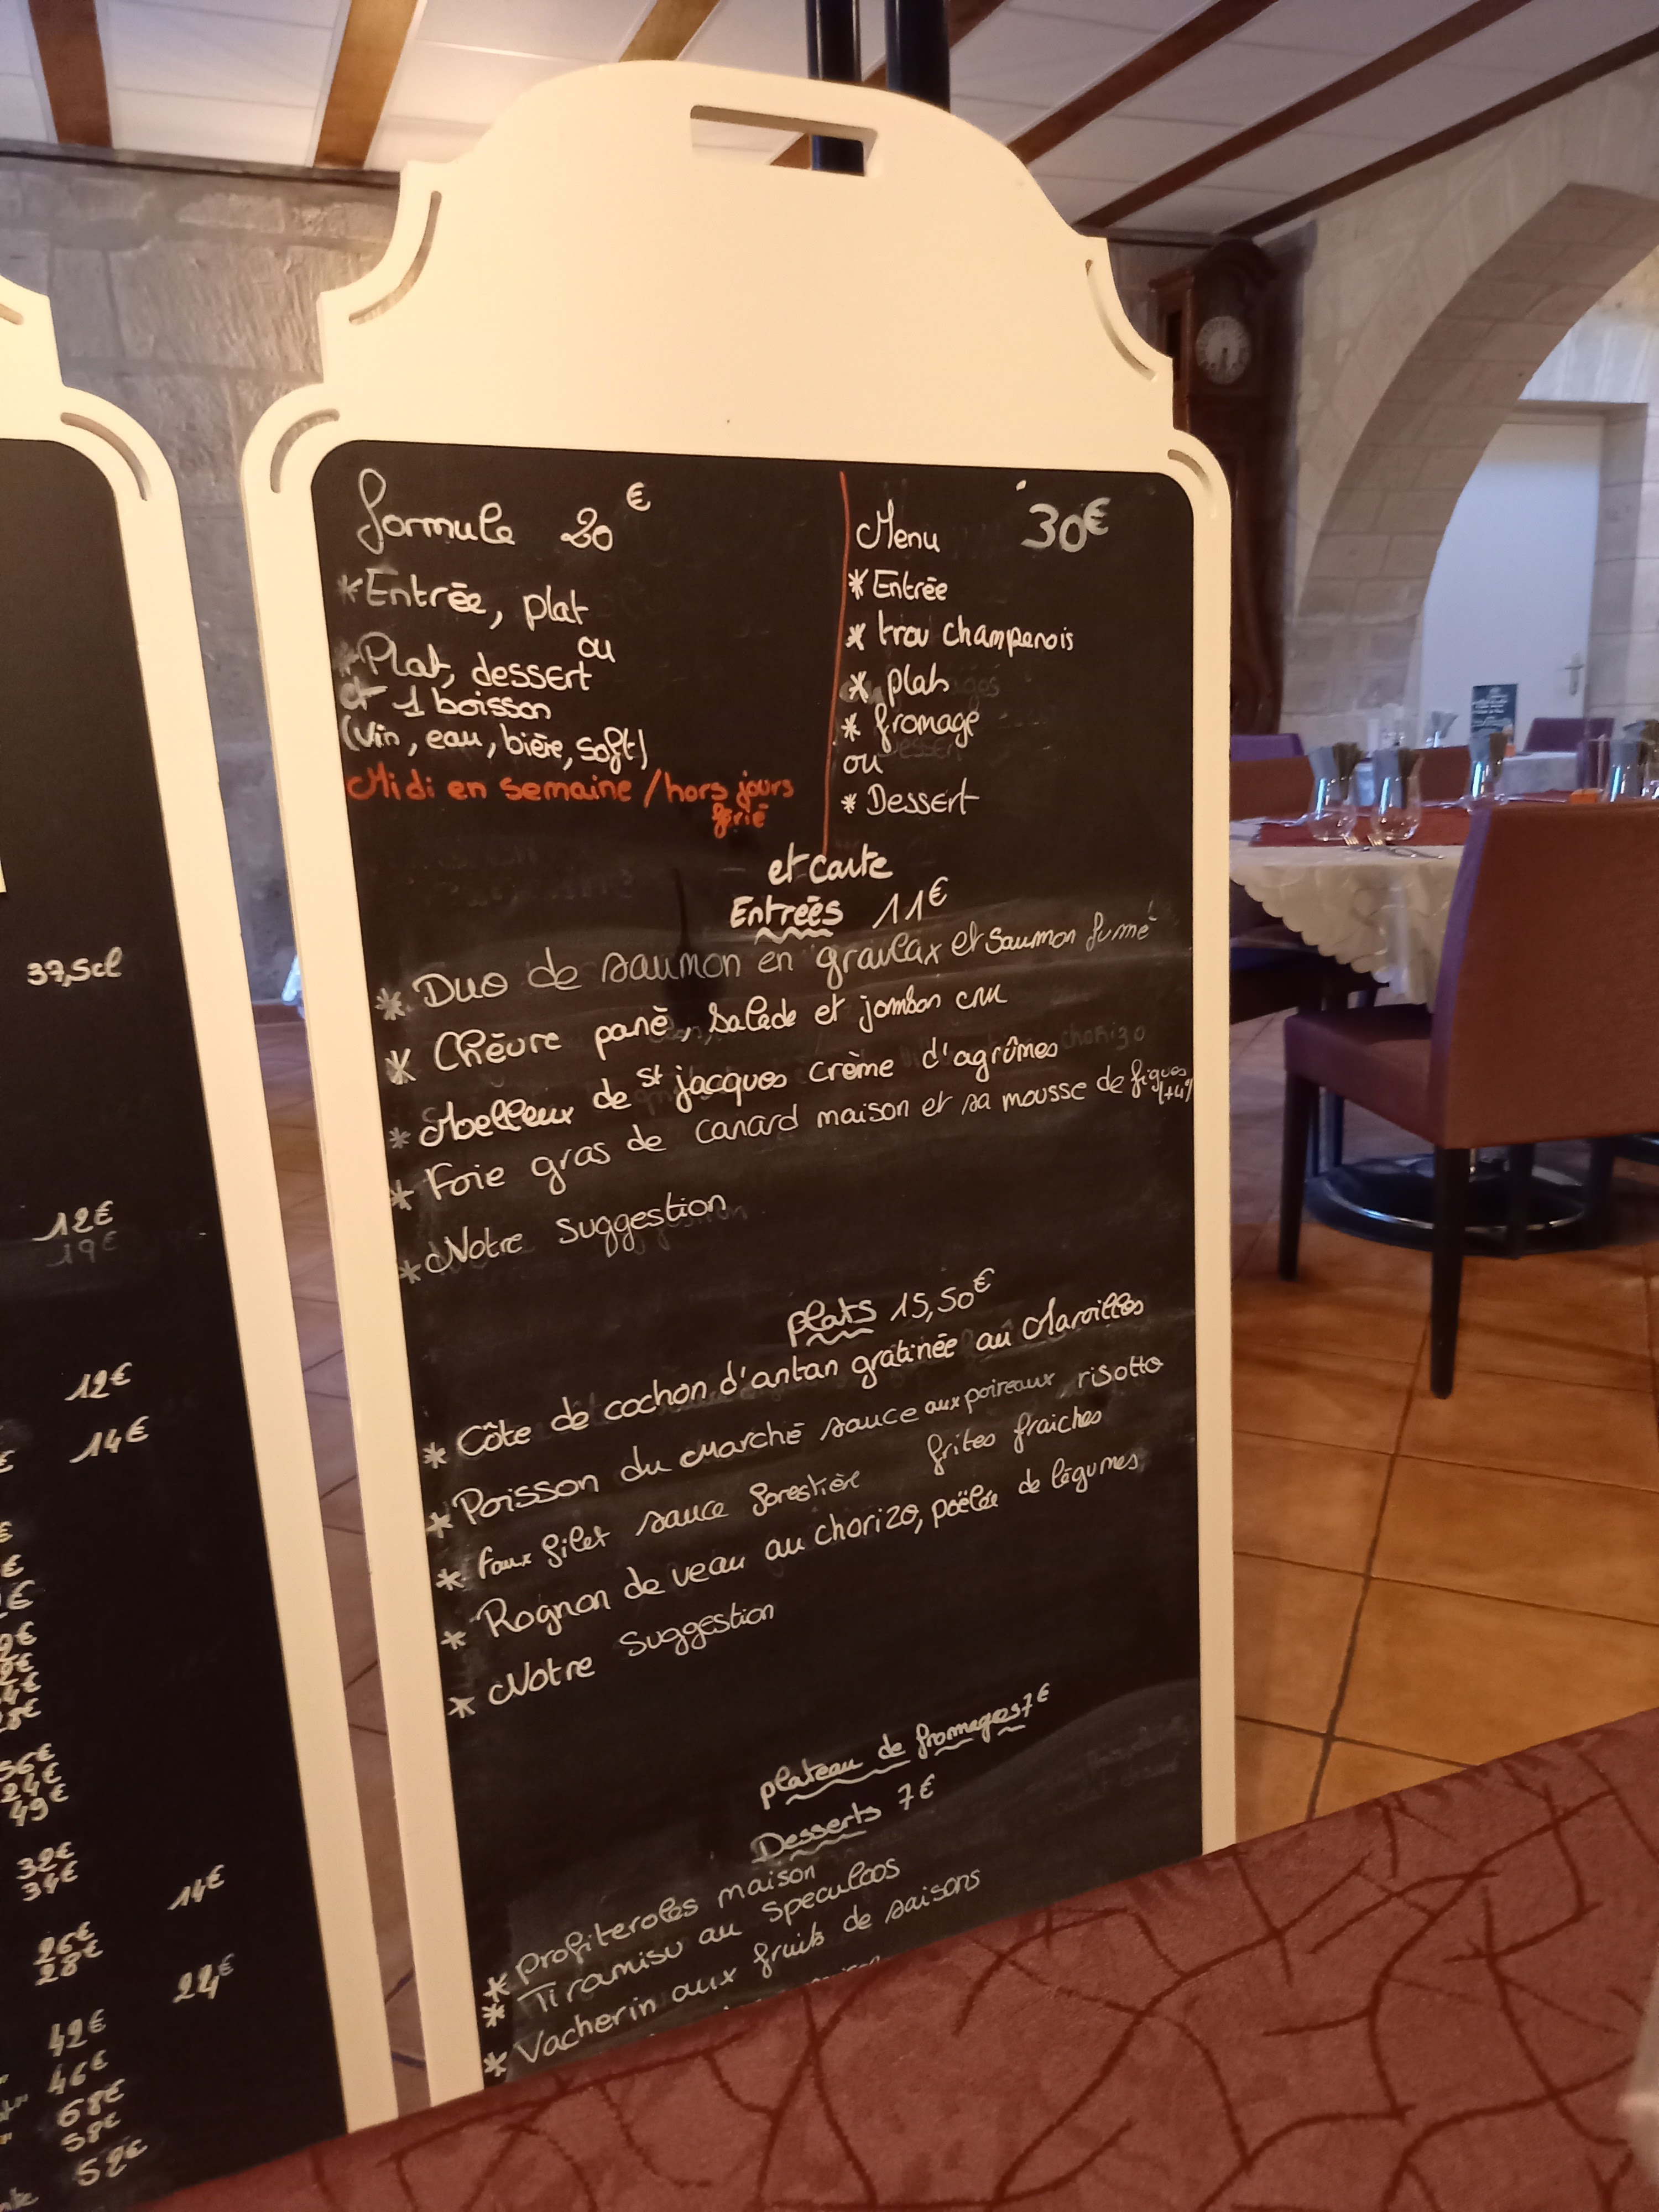 formule 20€
*Entrée, plat
ou
*Plat, dessert
et 1 boisson
(vin, eau, bière, soft)
Midi en semaine / hors jours
férié
Menu 30€
* Entrée
* trou champenois
* plats
* fromage
ou
* Dessert
et carte
Entrées 11€
* Duo de saumon en gravlax et saumon fumé
* Chèvre pané, salade et jambon cru
* Moelleux de St jacques crème d'agrûmes
* Foie gras de canard maison et sa mousse de figues (+4€)
* Notre suggestion
plats 15,50€
* Côte de cochon d'antan gratinée au Maroilles
* Poisson du marché sauce aux poireaux, risotto
* Faux filet sauce forestière frites fraiches
* Rognon de veau au chorizo, poëlée de légumes
* Notre suggestion
plateau de fromages 7€
Desserts 7€
* Profiteroles maison
* Tiramisu au speculoos
* Vacherin aux fruits de saisons
37,5cl
12€
19€
12€
14€
24€
49€
32€
34€
14€
26€
28€
24€
42€
46€
68€
58€
52€